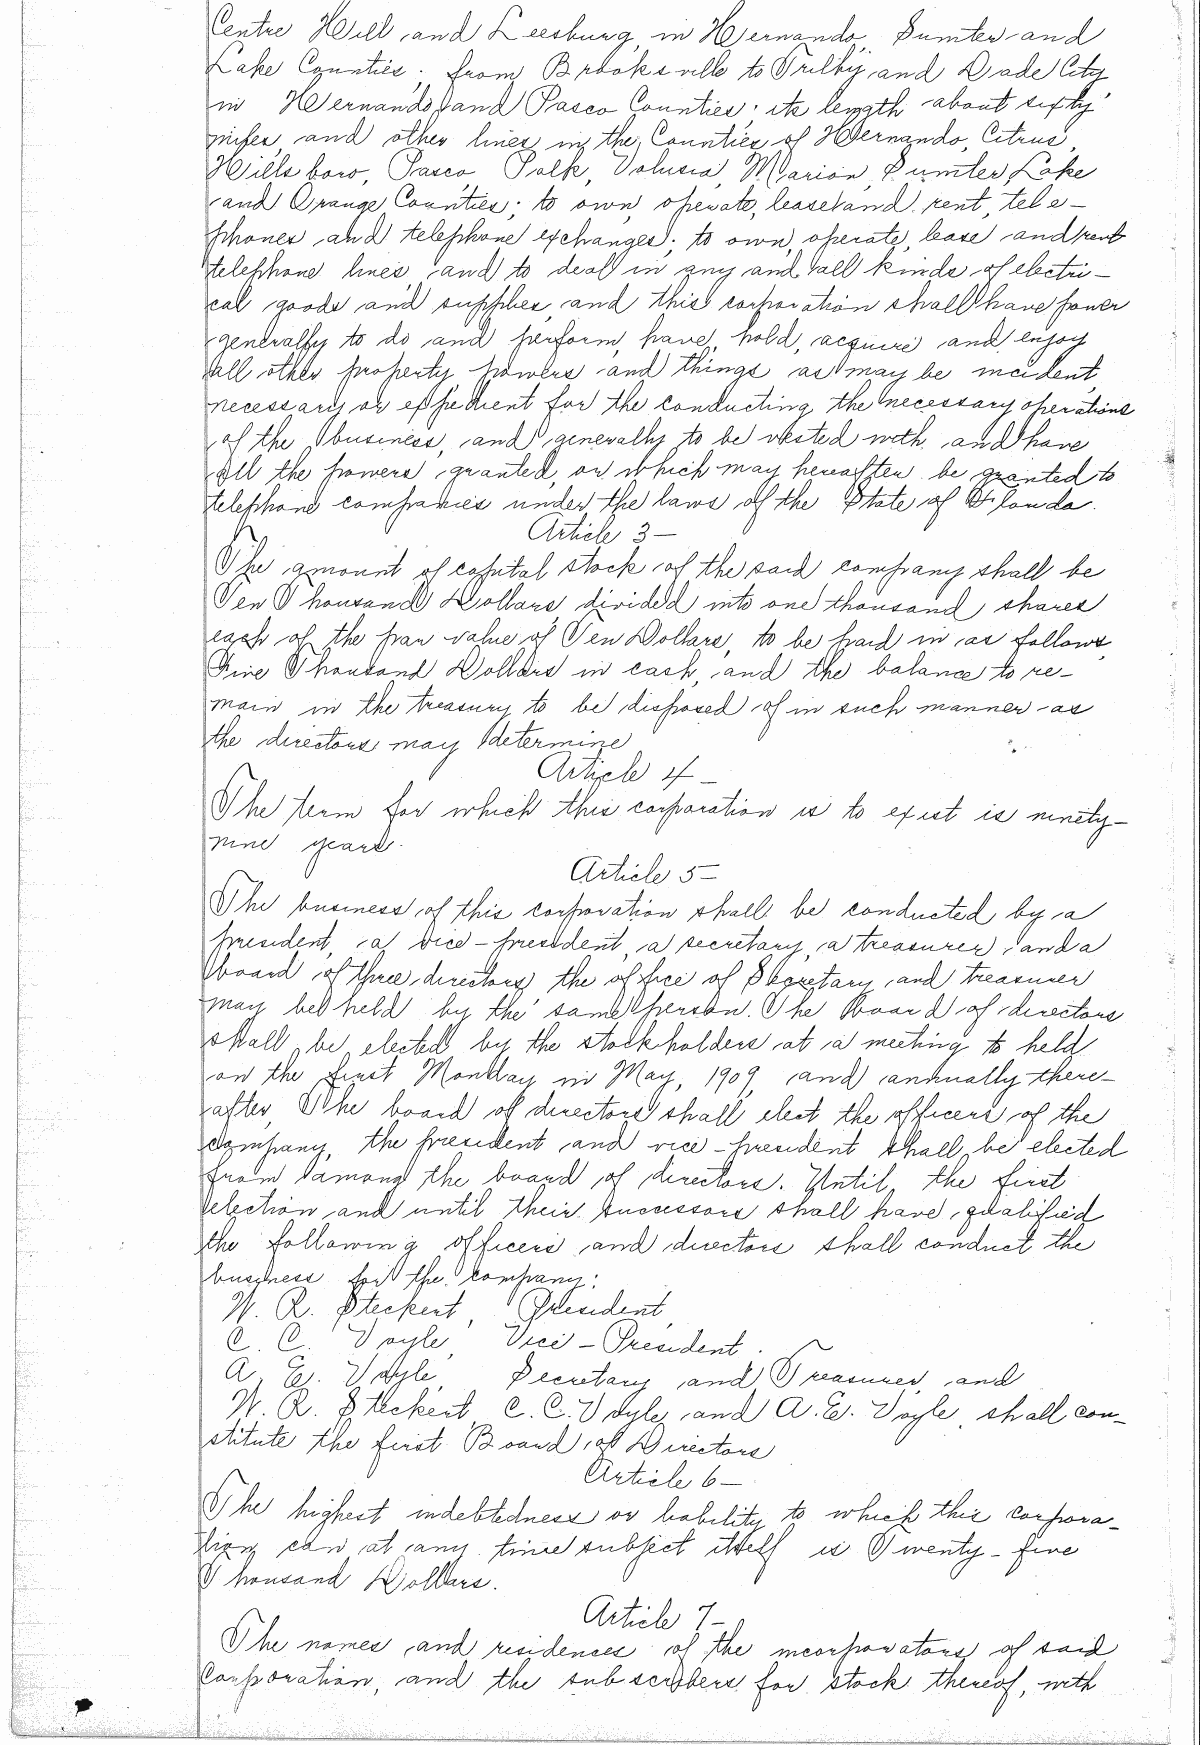 Centre Hill and Leesburg, in Hernando, Sumter and
Lake Counties; from Brooksville to Trilby and Dade City
in Hernando and Pasco Counties; its length about sixty
miles, and other lines in the Counties of Hernando, Citrus,
Hillsboro, Pasco, Polk, Volusia, Marion, Sumter, Lake
and Orange Counties; to own, operate, lease and rent, tele-
phones and telephone exchanges; to own, operate, lease and rent
telephone lines, and to deal in any and all kinds of electri-
cal goods and supplies, and this corporation shall have power
generally to do and perform, have, hold, acquire and enjoy
all other property, powers and things as may be incident,
necessary or expedient for the conducting the necessary operations
of the business, and generally to be vested with and have
all the powers granted, or which may hereafter be granted to
telephone companies under the laws of the State of Florida.
Article 3-
The amount of capital stock of the said company shall be
Ten Thousand Dollars, divided into one thousand shares
each of the par value of Ten Dollars, to be paid in as follows,
Five Thousand Dollars in cash, and the balance to re-
main in the treasury to be disposed of in such manner as
the directors may determine
Article 4-
The term for which this corporation is to exist is ninety-
nine years.
Article 5-
The business of this corporation shall be conducted by a
president, a vice-president, a secretary, a treasurer, and a
board of three directors, the office of Secretary and treasurer
may be held by the same person. The board of directors
shall be elected by the stockholders at a meeting to held
on the first Monday in May, 1909, and annually there-
after, The board of directors shall elect the officers of the
company, the president and vice-president shall be elected
from among the board of directors. Until the first
election and until their successors shall have qualified
the following officers and directors shall conduct the
business for the company:
W. R. Steckert, President,
C. C. Voyle, Vice-President.
A. E. Voyle, Secretary and Treasurer, and
W. R. Steckert, C. C. Voyle and A. E. Voyle, shall con-
stitute the first Board of Directors
Article 6-
The highest indebtedness or liability to which this corpora-
tion can at any time subject itself is Twenty-five
Thousand Dollars.
Article 7-
The names and residences of the incorporators of said
Corporation, and the subscribers for stock thereof, with